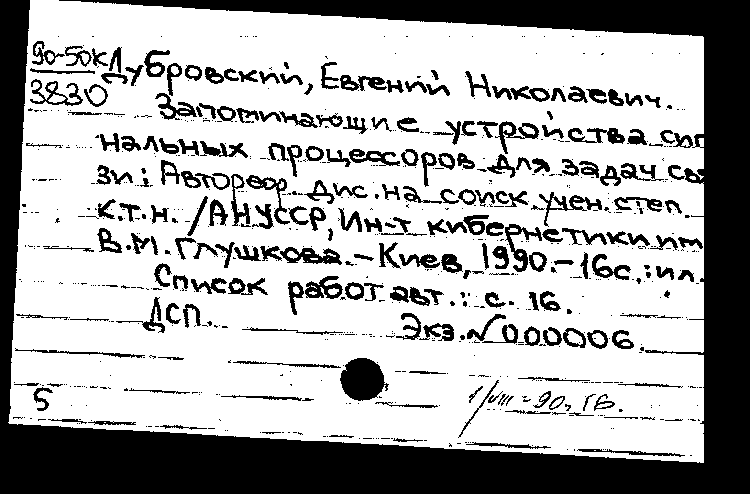 90-50к
3830
Дубровский, Евгений Николаевич.
Запоминающие устройства сиг
нальных процессоров для задач свя
зи: Автореф. дис. на соиск. учен. степ.
к.т.н. /АНУССР, Ин-т кибернетики им
В.М. Глушкова. – Киев, 1990. – 16с.: ил.
Список работ авт.: с. 16.
ДСП. Экз. № 000006.
5
1/VIII - 90.